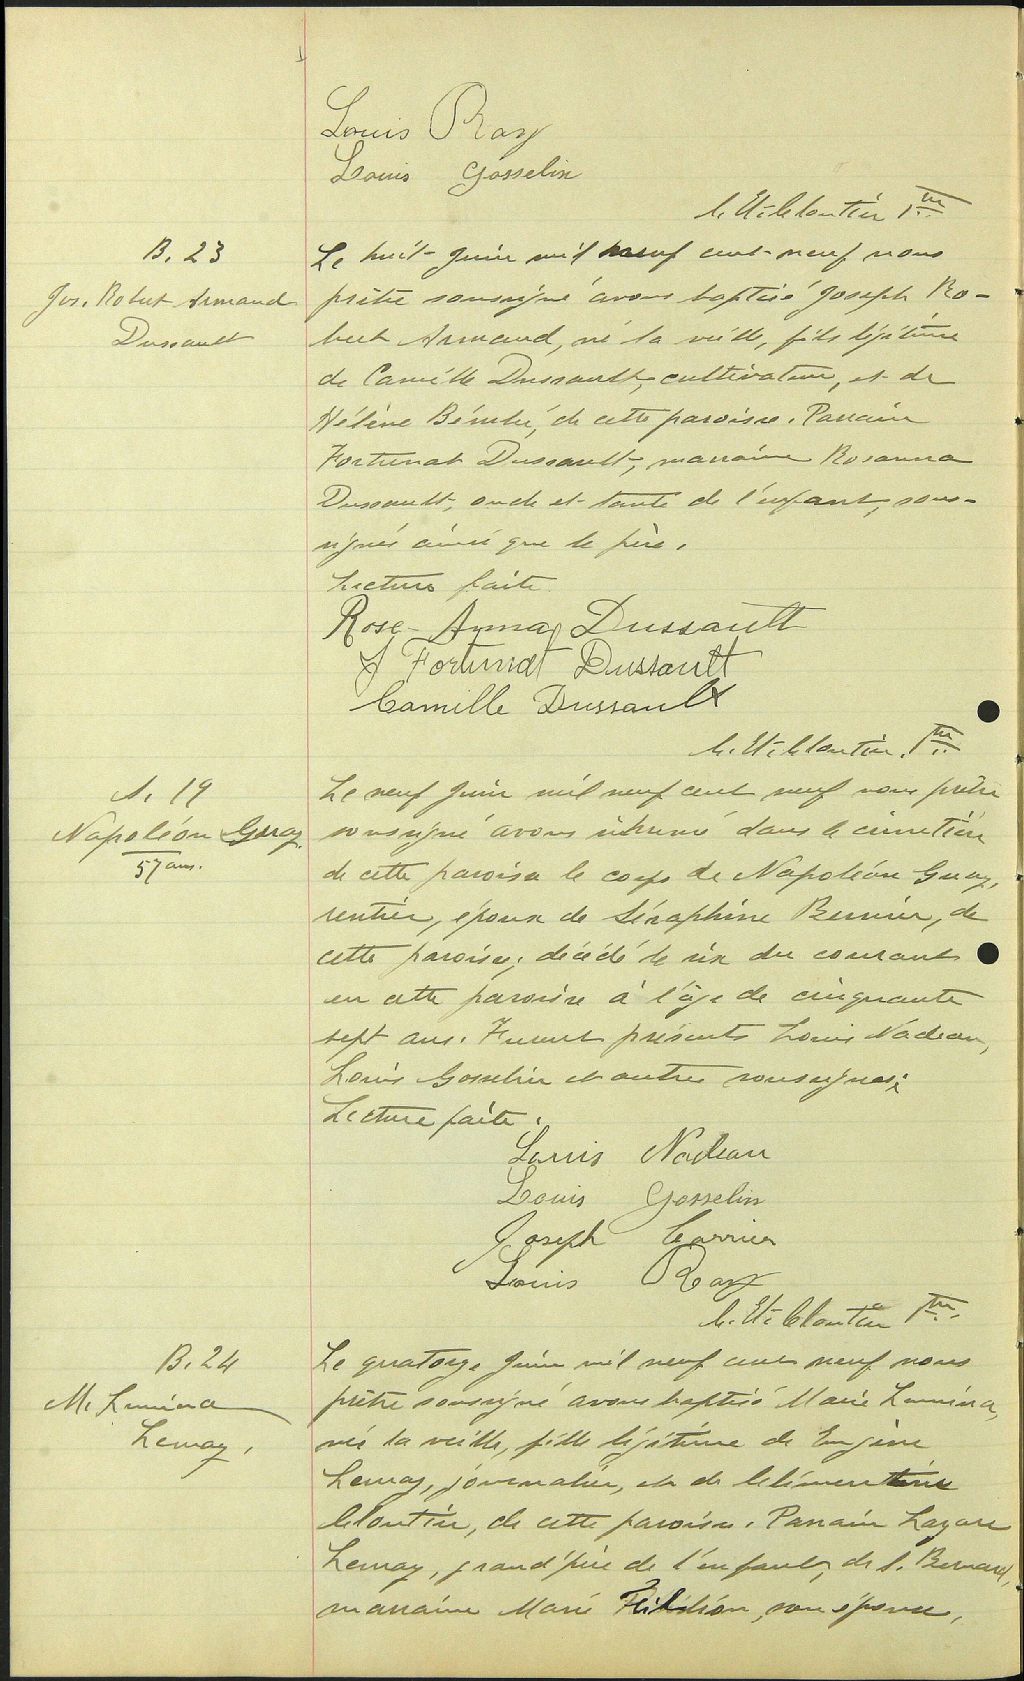 Louis Roy
Louis Gosselin
C. Et. Cloutier Ptre
B. 23
Jos. Robert Armand
Dussault
Le huit Juin mil neuf cent-neuf nous
prêtre soussigné avons baptisé Joseph Ro-
bert Armand, né la veille, fils légitime
de Camille Dussault, cultivateur, et de
Hélène Bérubé, de cette paroisse. Parrain
Fortunat Dussault, marraine Rosanna
Dussault, oncle et tante de l'enfant, sous-
signés ainsi que le père.
Lecture faite
Rose-Anna Dussault
J Fortunat Dussault
Camille Dussault
C. Et. Cloutier. Ptre
S. 19
Napoléon Guay.
57 ans.
Le neuf Juin mil neuf cent neuf nous prêtre
soussigné avons inhumé dans le cimetière
de cette paroisse le corps de Napoléon Guay,
rentier, époux de Séraphine Bernier, de
cette paroisse, décédé le six du courant
en cette paroisse à l'âge de cinquante
sept ans. Furent présents Louis Nadeau,
Louis Gosselin et autres soussignés.
Lecture faite.
Louis Nadeau
Louis Gosselin
Joseph Carrier
Louis Roy
C. Et. Cloutier Ptre.
B. 24
M. Lumina
Lemay.
Le quatorze Juin mil neuf cent neuf nous
prêtre soussigné avons baptisé Marie Lumina,
née la veille, fille légitime de Eugène
Lemay, journalier, et de Clémentine
Cloutier, de cette paroisse. Parrain Lazare
Lemay, grand'père de l'enfant, de S. Bernard,
marraine Marie son épouse,